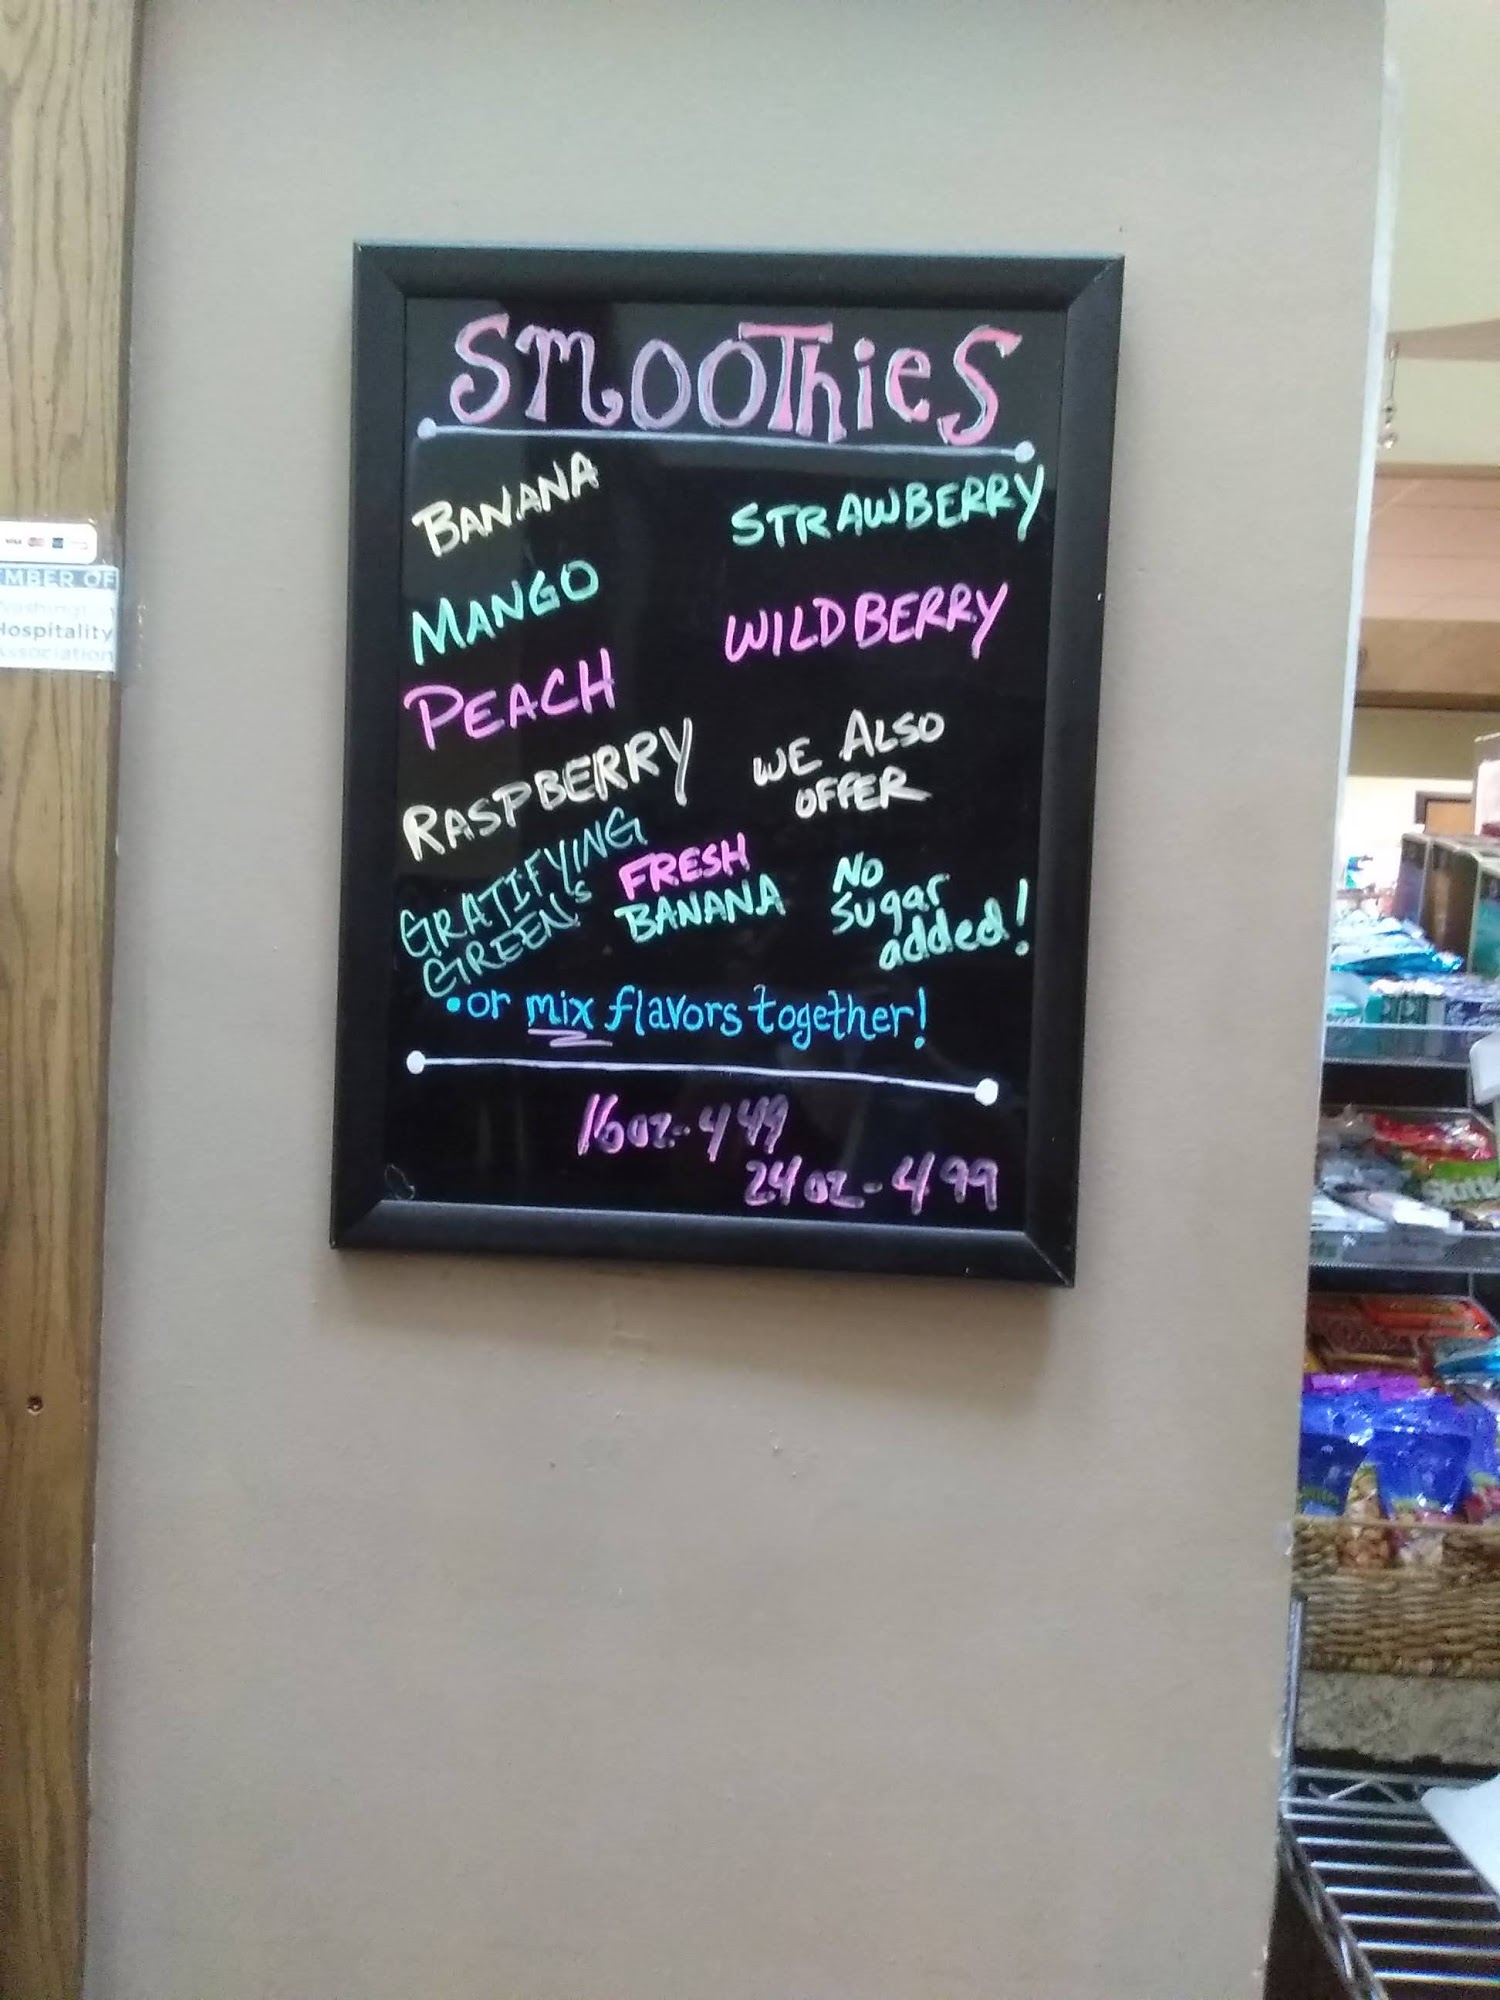 SMOOThiES
BANANA
MANGO
PEACH
RASPBERRY
GRATIFYING
GREEN'S
STRAWBERRY
WILDBERRY
WE ALSO
OFFER
FRESH
BANANA
No
Sugar
added!
•or mix flavors together!
16oz-449
24oz-499
VISA
MBER OF
Hospitality
Association